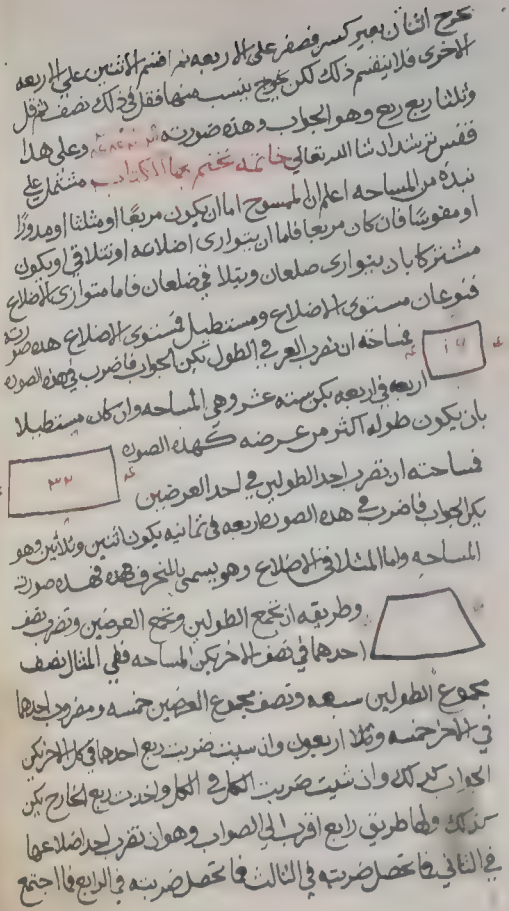 يخرج اثنان بغير كسر فصفر على الاربعه ثم اقسم الاثنين على الاربعه
الاخرى فلا ينقسم ذلك لكن يخرج بنسب منها فقل في ذلك نصف ثم قل
وثلثا ربع ربع وهو الجواب وهذه صورته وعلى هذا
فقس ترشد ان شا الله تعالى خاتمه نختم بها الكتاب مشتمل على
نبذه من المساحه اعلم ان الممسوح اما ان يكون مربعا او مثلثا او مدورا
او مقوسا فان كان مربعا فاما ان يتوازى اضلاعه او تتلاقى او يكون
مشتركا بان يتوازى ضلعان ويتلاقى ضلعان فاما متوازى الاضلاع
فنوعان مستوى الاضلاع ومستطيل فمستوى الاضلاع هذه صورته
١٦ فمساحته ان تضرب العرض في الطول يكن الجواب فاضرب في هذه الصوره
اربعه في اربعه يكن سته عشر وهي المساحه وان كان مستطيلا
بان يكون طوله اكثر من عرضه كهذه الصوره
٣٢ فمساحته ان تضرب احد الطولين في احد العرضين
يكن الجواب فاضرب في هذه الصوره اربعه في ثمانيه يكون اثنين وثلاثين وهو
المساحه واما المتلاقى الاضلاع وهو يسمى بالمنحرف فهذه صورته
وطريقه ان تجمع الطولين وتجمع العرضين وتضرب نصف
احدهما في نصف الاخر يكن المساحه ففي المثال نصف
مجموع الطولين سبعه ونصف مجموع العرضين خمسه ومضروب احدهما
في الاخر خمسه وثلاثون وان شيت ضربت ربع احدهما في كل الاخر يكن
الجواب كذلك وان شيت ضربت الكل في الكل واخذت ربع الخارج يكن
كذلك ولها طريق رابع اقرب الى الصواب وهو ان تضرب احد اضلاعها
في الثاني فما تحصل ضربته في الثالث فما تحصل ضربته في الرابع فما اجتمع